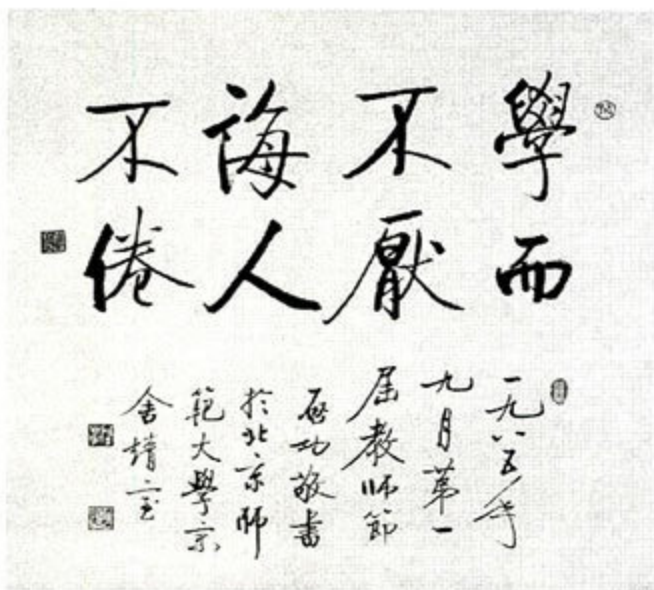 學而
不厭
誨人
不倦
一九八五年
九月第一
屆教師節
启功敬書
於北京師
範大學
舍室